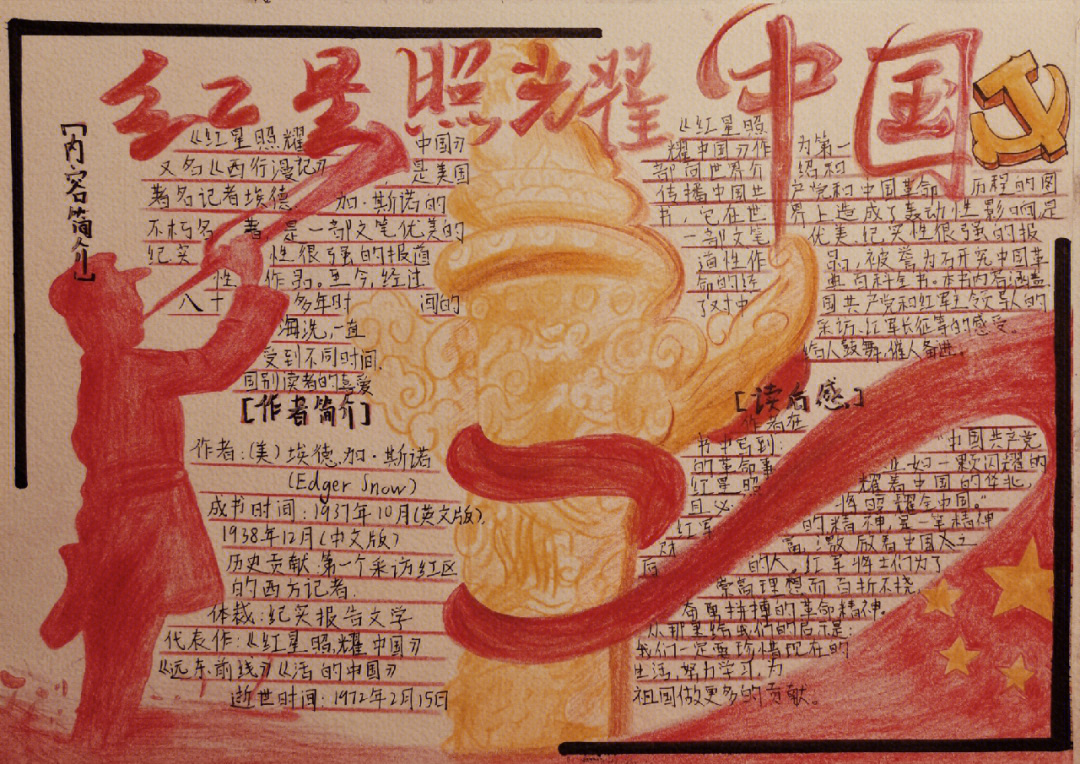 红星照耀中国
【内容简介】
《红星照耀 中国》
又名《西行漫记》,是美国
著名记者埃德 加·斯诺的
不朽名 著,是一部文笔优美的
纪实 性很强的报道
性 作品。至今,经过
八十 多年时 间的
淘洗,一直
受到不同时间,
国别读者的喜爱
《红星照
耀中国》作 为第一
部向世界介 绍和
传播中国共 产党和中国革命 历程的图
书,它在世 界上造成了轰动性影响是
一部文笔 优美,纪实性很强的报
道性作 品,被誉为研究中国革
命的经 典百科全书。本书内容涵盖
了对中 国共产党和红军主要领导人的
采访,红军长征等的感受。
给人鼓舞,催人奋进。
【作者简介】
作者:(美)埃德加·斯诺
(Edger Snow)
成书时间:1937年10月(英文版),
1938年12月(中文版)
历史贡献:第一个采访红区
的西方记者.
体裁:纪实报告文学
代表作:《红星照耀中国》
《远东前线》《活的中国》
逝世时间:1972年2月15日
【读后感】
作者在
书中写到: “中国共产党
的革命事 业如一颗闪耀的
红星照 耀着中国的华北,
且必 将照耀全中国。”
红军 的精神,是一笔精神
财 富,激
的人,红军将士们为了
崇高理想而百折不挠,
奋勇拼搏的革命精神。
从那里给我们的启示是:
我们一定要珍惜现在的
生活,努力学习,为
祖国做更多的贡献。